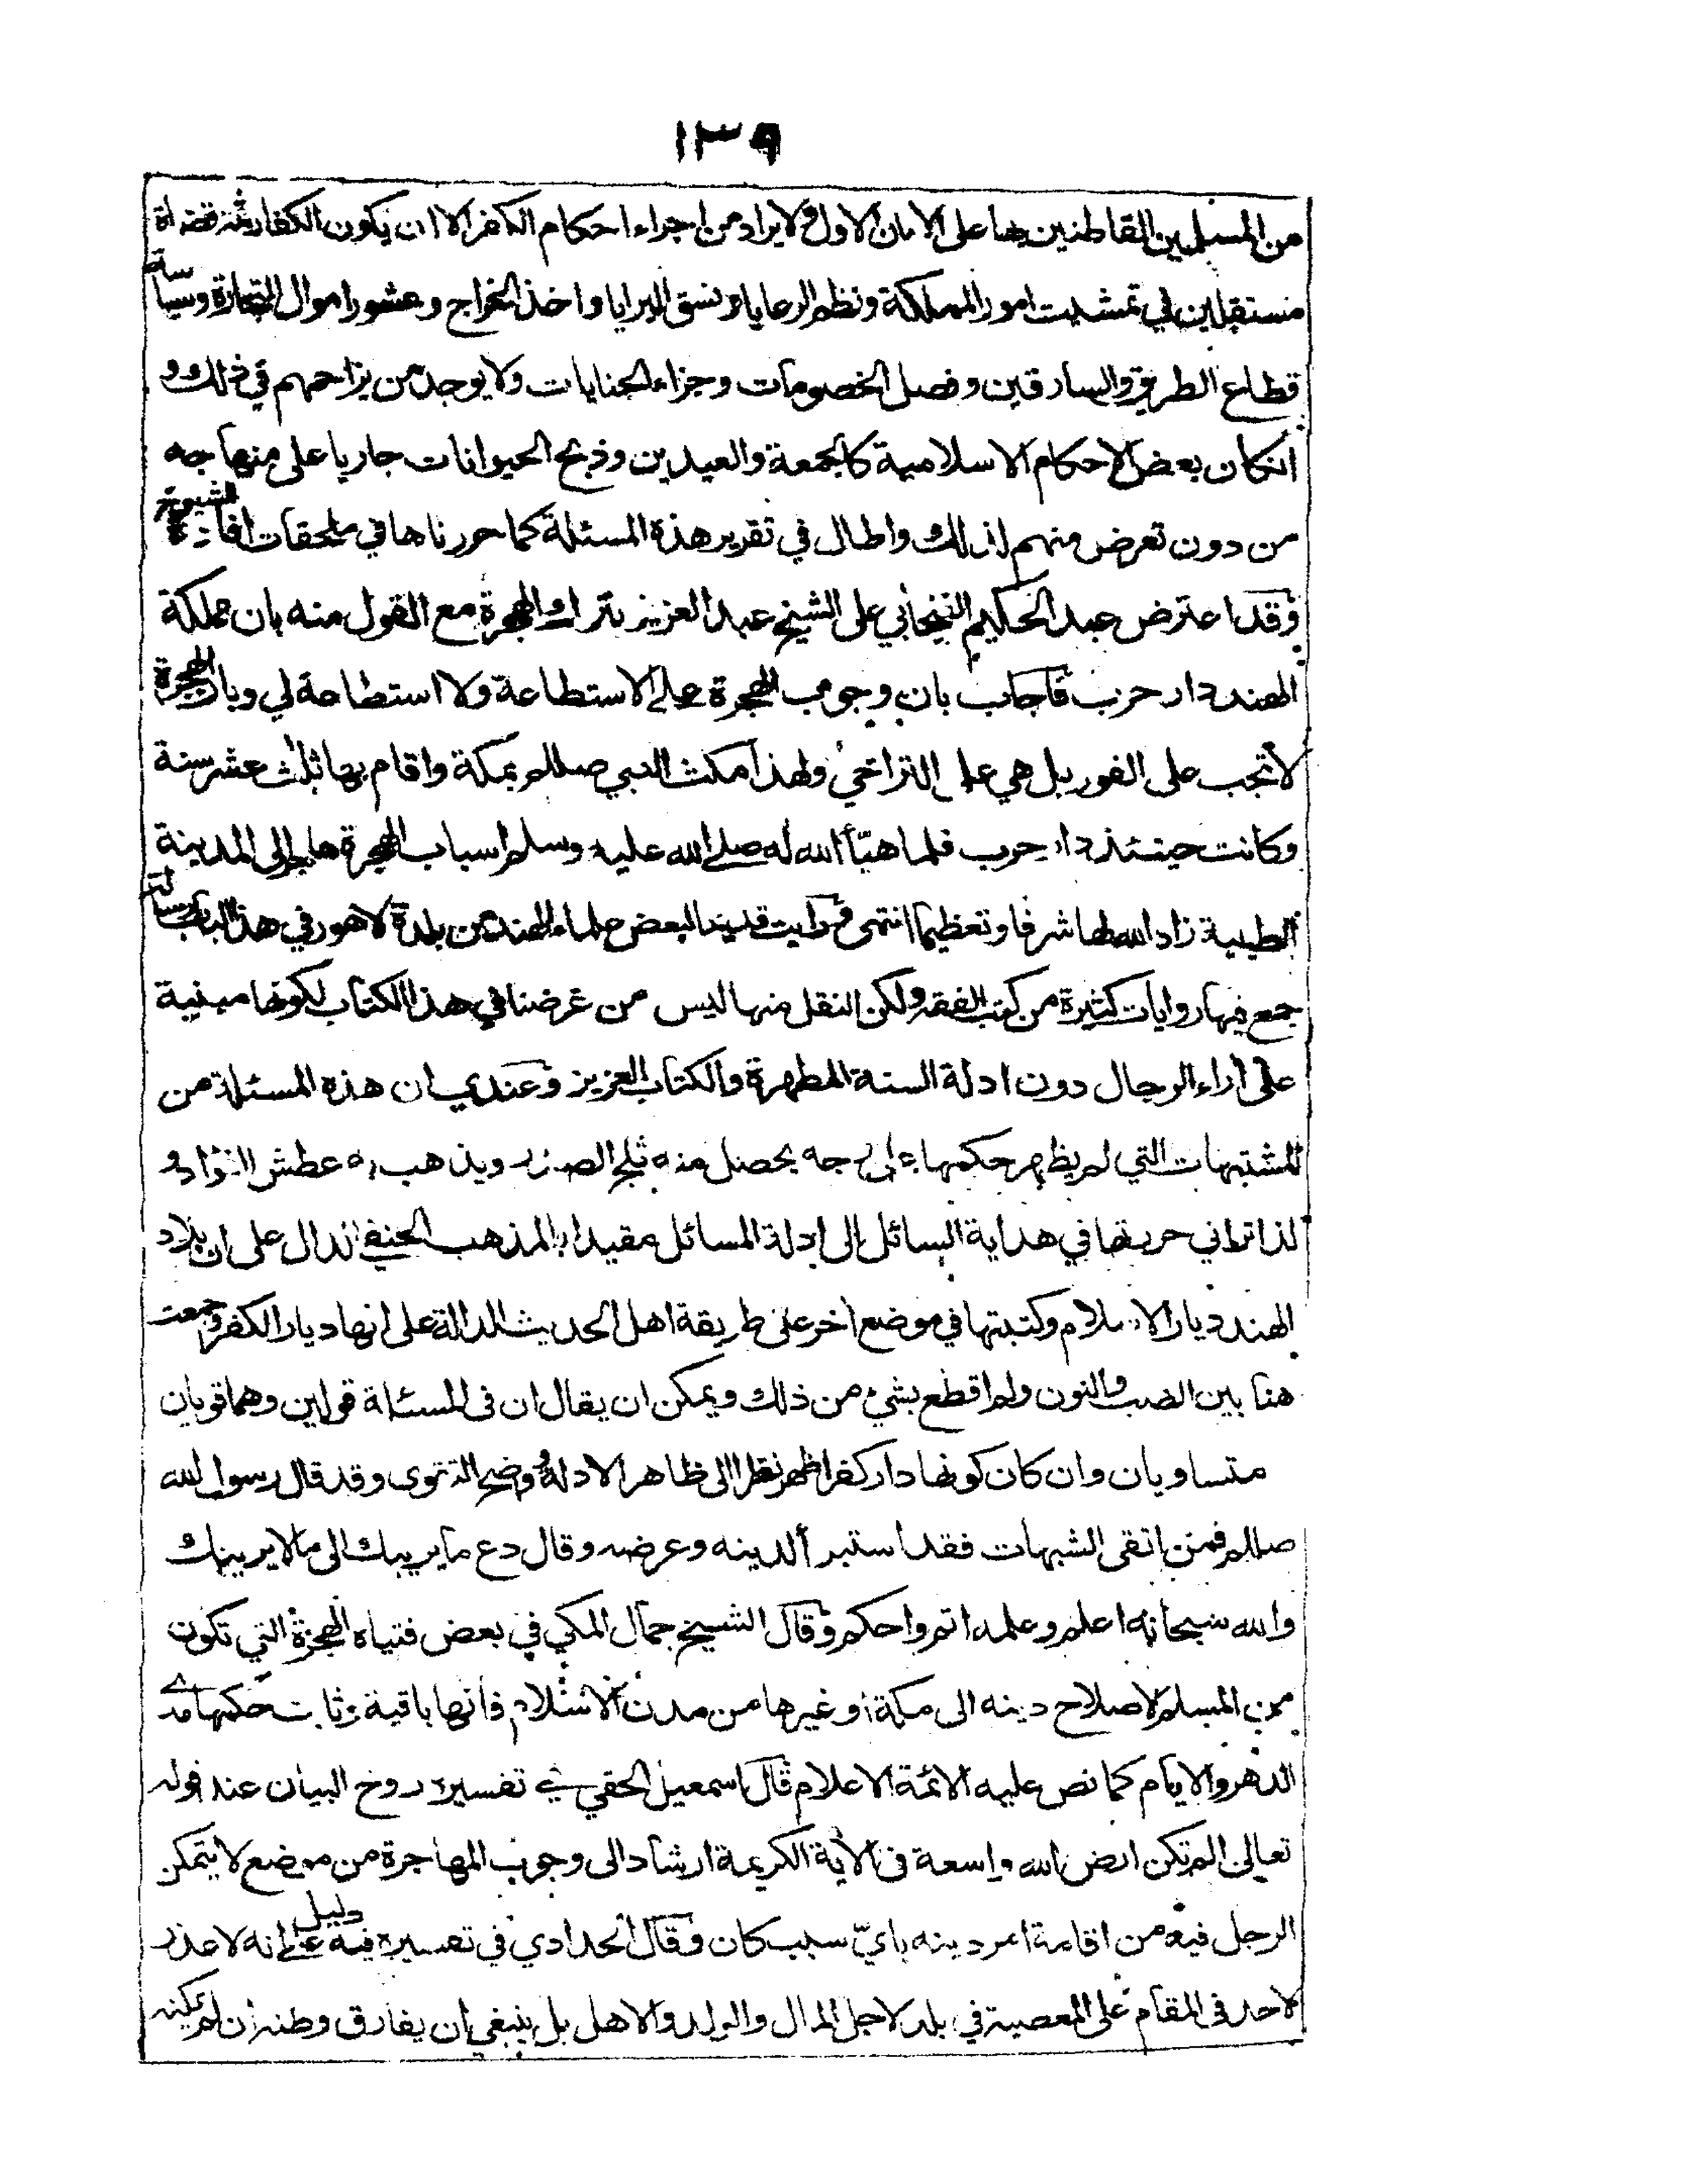 ١٣٩
من المسلمين القاطنين بها على الامان الاول ولا يراد من اجراء احكام الكفر الا ان يكون الكفار ثمه قضاة
مستقلين في تمشيت امور المملكة ونظم الرعايا ونسق البرايا واخذ الخراج وعشور اموال التجارة وسياسة
قطاع الطريق والسارقين وفصل الخصومات وجزاء الجنايات ولا يوجد من يزاحمهم في ذلك و
انكان بعض الاحكام الاسلامية كالجمعة والعيدين وذبح الحيوانات جاريا على منهاجه
من دون تعرض منهم لذلك واطال في تقرير هذه المسئلة كما حررناها في ملحقات افادة الشيوخ
وقد اعترض عبد الحكيم على الشيخ عبد العزيز بترك الهجرة مع القول منه بان مملكة
الهند دار حرب فاجاب بان وجوب الهجرة على الاستطاعة ولا استطاعة لي وبان الهجرة
لا تجب على الفور بل هي على التراخي ولهذا مكث النبي صللم بمكة واقام بها ثلث عشر سنة
وكانت حينئذ دار حرب فلما هيّأ الله له صلے الله عليه وسلم اسباب الهجرة هاجر الى المدينة
الطيبة زاد الله لها شرفا وتعظيما انتهى ورايت قديما لبعض علماء الهند من بلدة لاهور في هذا الباب رسالة
جمع فيها روايات كثيرة من كتب الفقه ولكن النقل منها ليس من غرضنا في هذا الكتاب لكونها مبنية
على أراء الرجال دون ادلة السنة المطهرة والكتاب العزيز وعندي ان هذه المسئلة من
المشتبهات التي لم يظهر حكمها على وجه يحصل منه ثلج الصدر ويذهب به عطش الفؤاد و
لذا تراني حررتها في هداية السائل الى ادلة المسائل مقيدا بالمذهب الحنفي الدال على ان بلاد
الهند ديار الاسلام وكتبتها في موضع أخر على طريقة اهل الحديث الدالة على انها ديار الكفر وجمعت
هنا بين الضب والنون ولم اقطع بشيء من ذلك ويمكن ان يقال ان فى المسئلة قولين وهما قويان
متساويان وان كان كونها دار كفر اظهر نظرا الى ظاهر الادلة وقد قال رسول الله
صللم فمن اتقى الشبهات فقد استبرأ لدينه وعرضه وقال دع ما يريبك الى ما لا يريبك
والله سبحانه اعلم وعلمه اتم واحكم وقال الشيخ جمال المكي في بعض فتياه الهجرة التي تكون
من المسلم لاصلاح دينه الى مكة او غيرها من مدن الاسلام فانها باقية وثابت حكمها مدے
الدهر والايام كما نص عليه الائمة الاعلام قال اسمعيل الحقي في تفسيره روح البيان عند قوله
تعالى الم تكن ارض الله واسعة في الأية الكريمة ارشاد الى وجوب المهاجرة من موضع لا يتمكن
الرجل فيه من اقامة امر دينه بايّ سبب كان وقال الحدادي في تفسيره فيه دليل على انه لا عذر
لاحد فى المقام على المعصية في بلد لاجل المال والولد والاهل بل ينبغي ان يفارق وطنه ان لم يمكنه